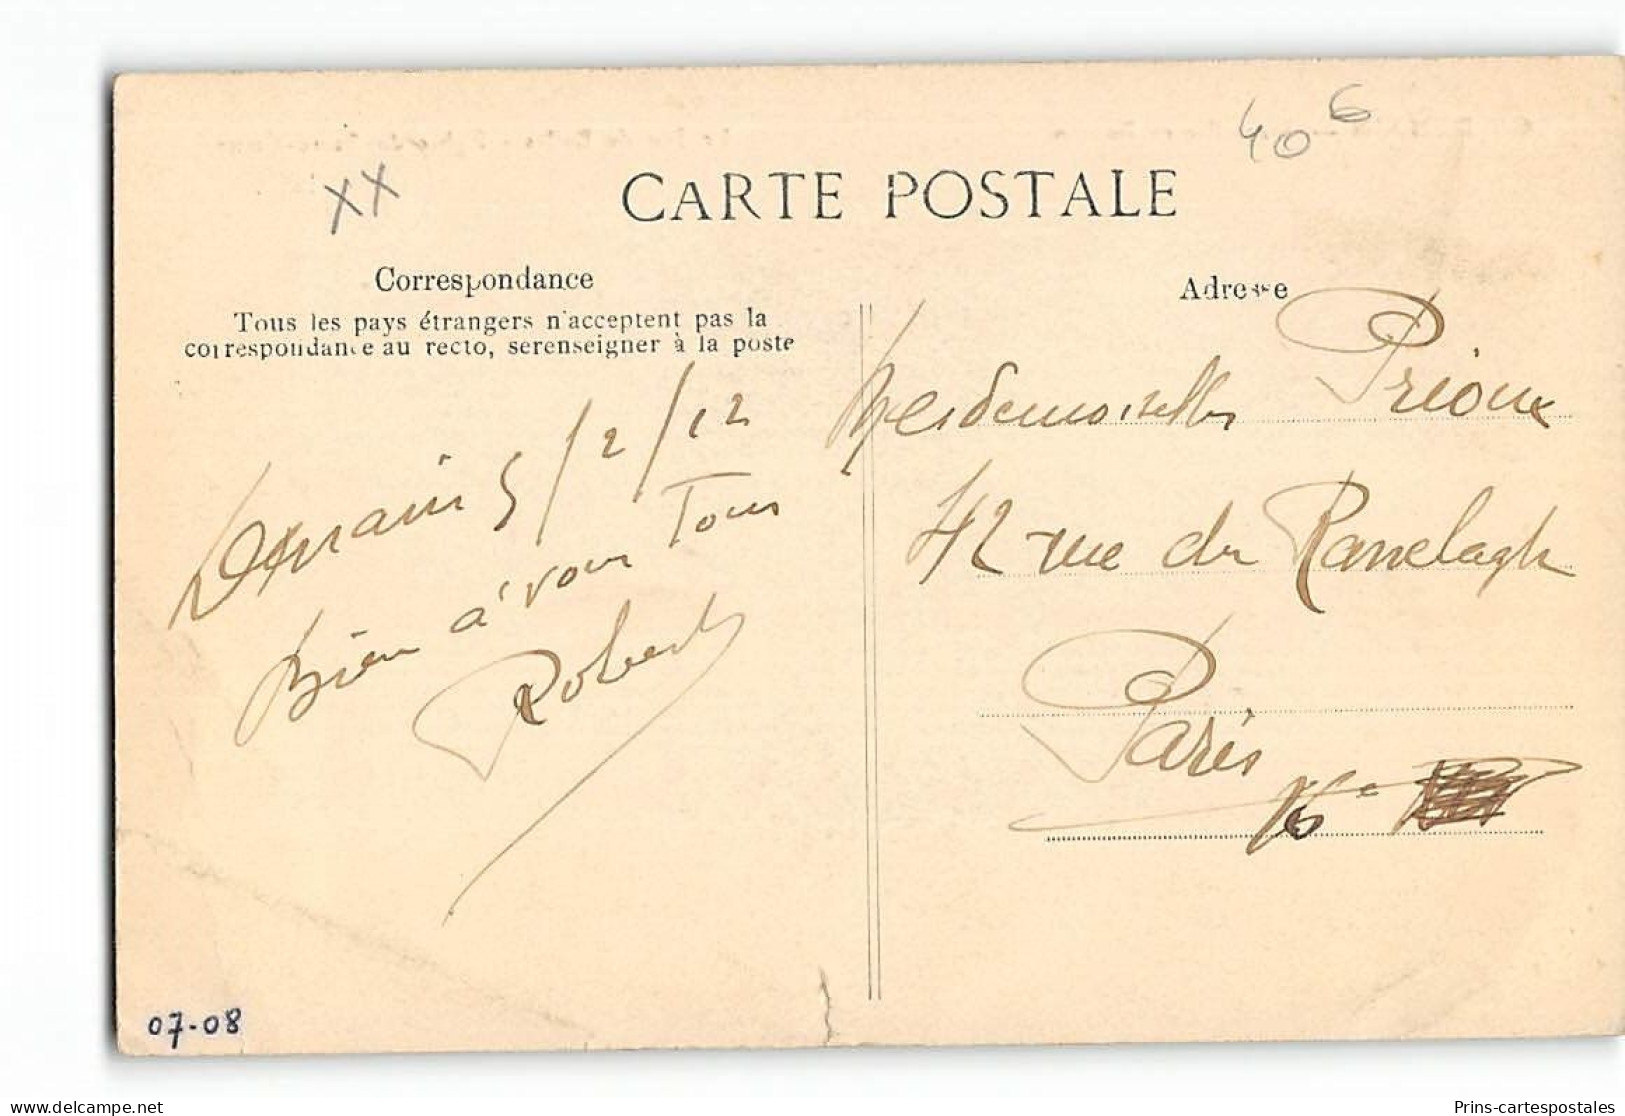 40 6
XX
CARTE POSTALE
Correspondance
Tous les pays étrangers n'acceptent pas la
correspondance au recto, serenseigner à la poste
Denain 5/2/12
Bien à vous Tous
Robert
Adresse
Mesdemoiselles Prioux
42 rue du Ranelagh
Paris
16e
07-08
delcampe.net
Prins-cartespostales